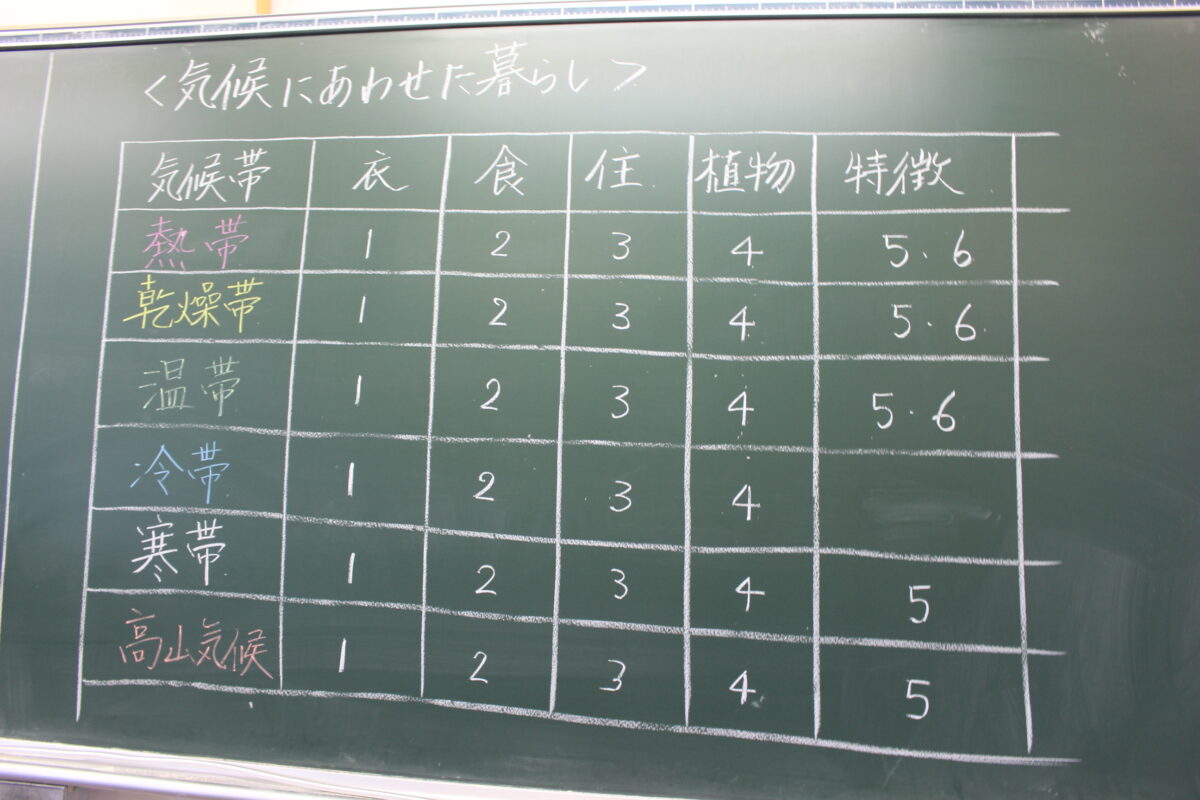 <気候にあわせた暮らし>
気候帯 衣 食 住 植物 特徴
熱帯 1 2 3 4 5・6
乾燥帯 1 2 3 4 5・6
温帯 1 2 3 4 5・6
冷帯 1 2 3 4
寒帯 1 2 3 4 5
高山気候 1 2 3 4 5